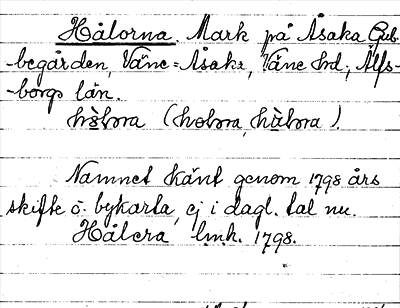 Hålorna. Mark på Åsaka Gub-
-begården, Väne-Åsaka, Väne hd, Älfs-
-borgs län.
Namnet känt genom 1798 års
skifte o. bykarta, ej i dagl. tal nu.
Hålera lmh. 1798.